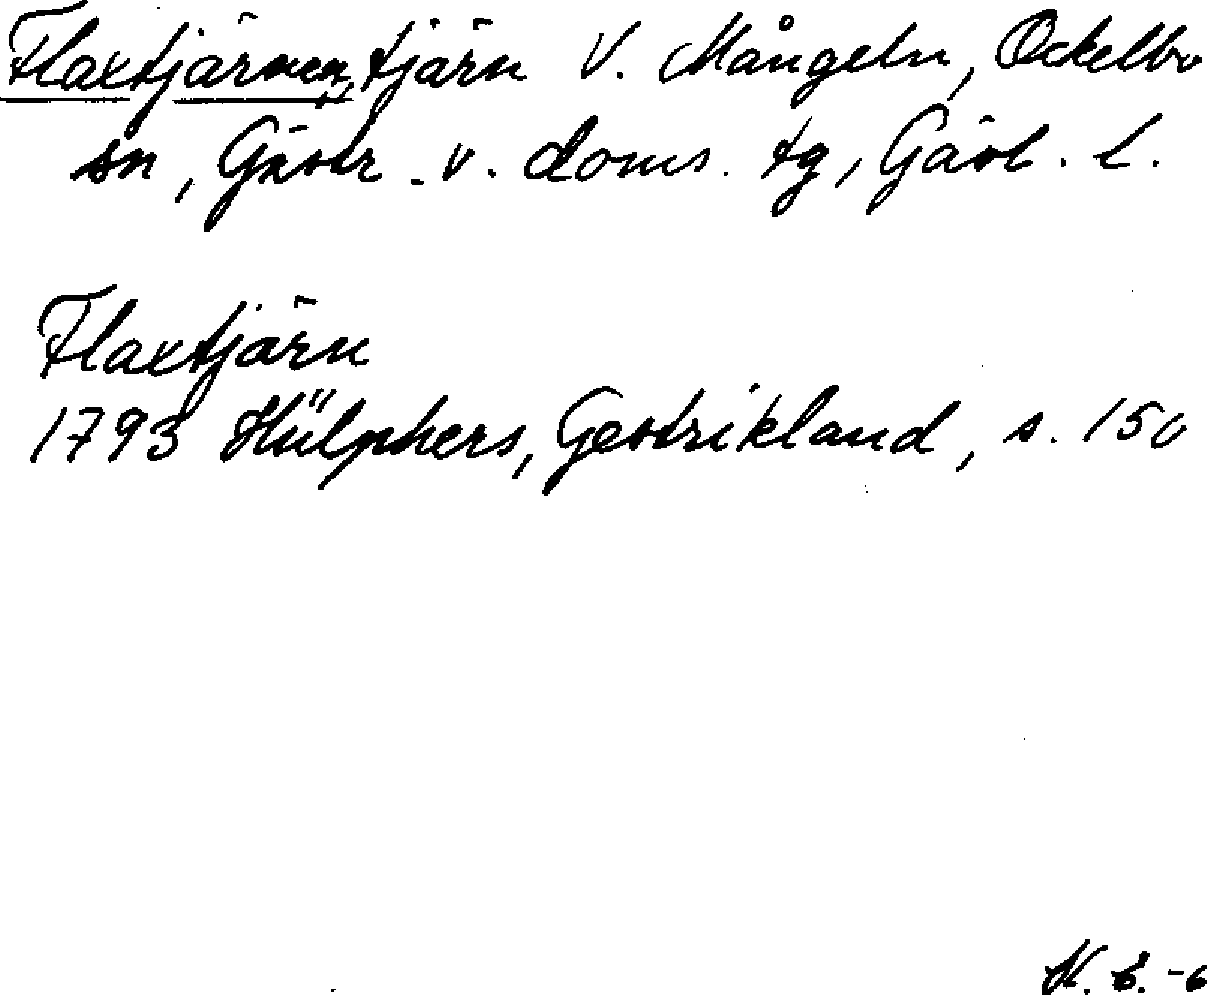 Flaxtjärnen, tjärn V. Mångeln, Ockelbo
sn, Gästr. v. doms. tg, Gävl. l.
Flaxtjärn
1793 Hülphers, Gestrikland, s. 150